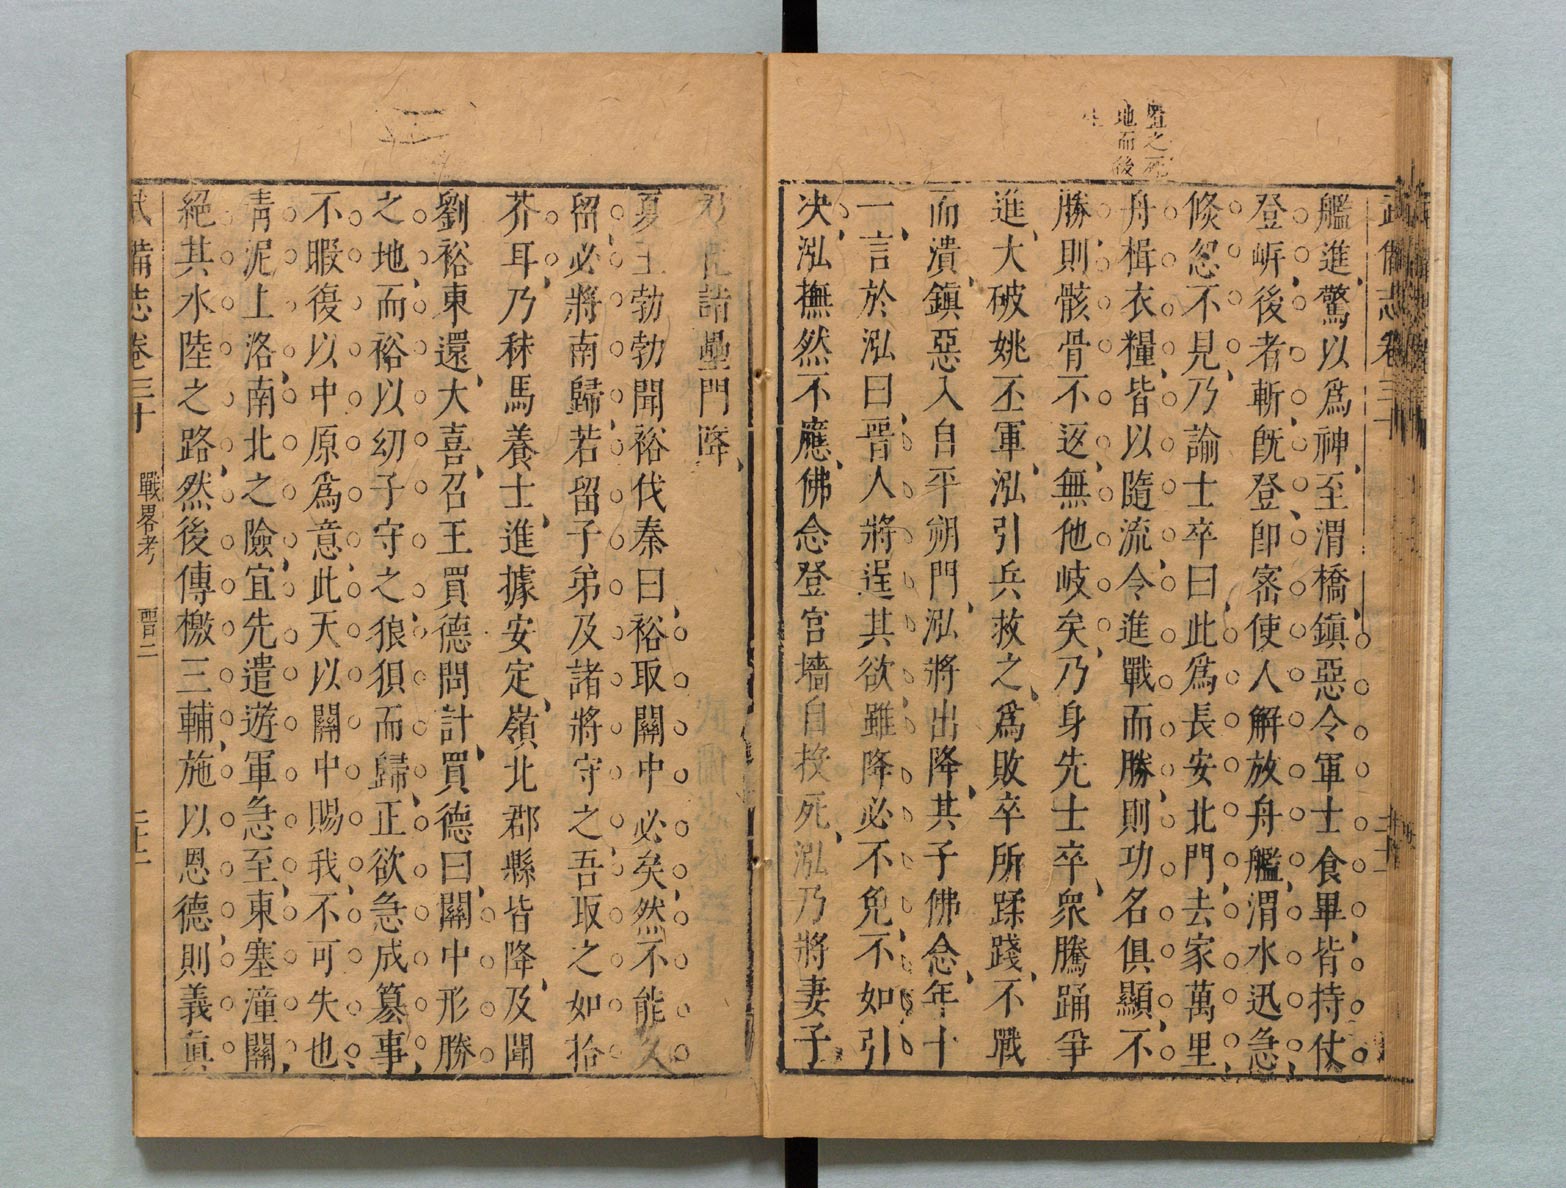 置之死
地而後
生
武備志卷三十
艦進驚以爲神至渭橋鎮惡令軍士食畢皆持仗
登岍後者斬旣登卽密使人解放舟艦渭水迅急
倐忽不見乃諭士卒曰此爲長安北門去家萬里
舟楫衣糧皆以隨流今進戰而勝則功名俱顯不
勝則骸骨不返無他岐矣乃身先士卒衆騰踊爭
進大破姚丕軍泓引兵救之爲敗卒所蹂踐不戰
而潰鎮惡入自平朔門泓將出降其子佛念年十
一言於泓曰晉人將逞其欲雖降必不免不如引
决泓撫然不應佛念登宫墻自投死泓乃將妻子
詣壘門降
夏王勃勃聞裕伐秦曰裕取關中必矣然不能久
留必將南歸若留子弟及諸將守之吾取之如拾
芥耳乃秣馬養士進據安定嶺北郡縣皆降及聞
劉裕東還大喜召王買德問計買德曰關中形勝
之地而裕以幼子守之狼狽而歸正欲急成篡事
不暇復以中原爲意此天以關中賜我不可失也
青泥上洛南北之險宜先遣遊軍急至東塞潼關
絕其水陸之路然後傳檄三輔施以恩德則義眞
武備志卷三十 戰畧考 晉二 二十二